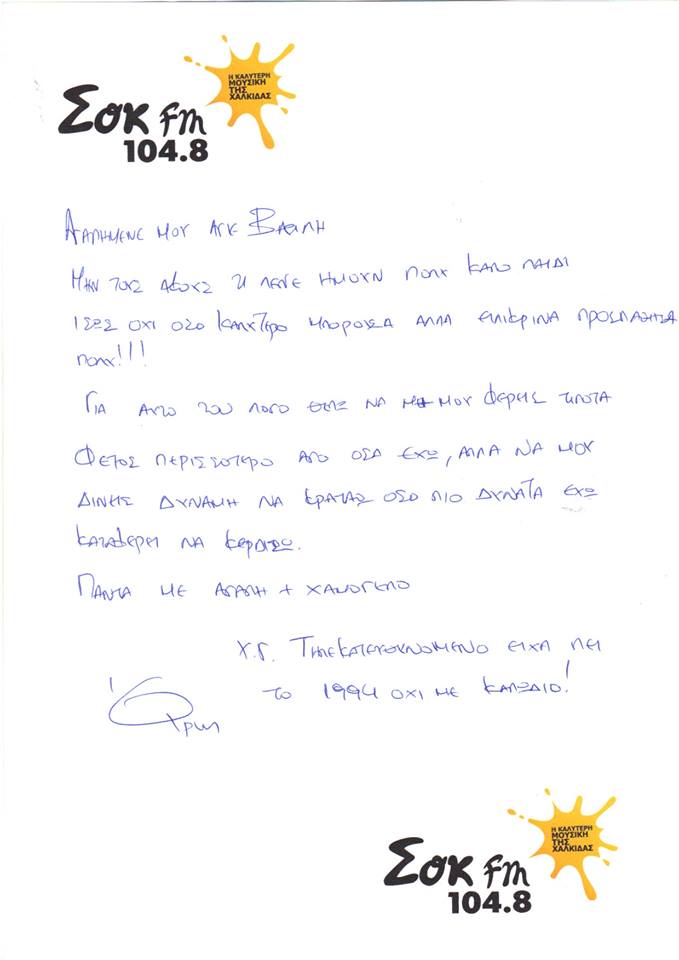 Η ΚΑΛΥΤΕΡΗ
ΜΟΥΣΙΚΗ
ΤΗΣ
ΧΑΛΚΙΔΑΣ
Σοκ fm
104.8
ΑΓΑΠΗΜΕΝΕ ΜΟΥ ΑΓΙΕ ΒΑΣΙΛΗ
ΜΗΝ ΤΟΥΣ ΑΚΟΥΣ ΤΙ ΛΕΝΕ ΗΜΟΥΝ ΠΟΛΥ ΚΑΛΟ ΠΑΙΔΙ
ΙΣΩΣ ΟΧΙ ΟΣΟ ΚΑΛΥΤΕΡΟ ΜΠΟΡΟΥΣΑ ΑΛΛΑ ΕΙΛΙΚΡΙΝΑ ΠΡΟΣΠΑΘΗΣΑ
ΠΟΛΥ!!!
ΓΙΑ ΑΥΤΟ ΤΟΝ ΛΟΓΟ ΘΕΛΩ ΝΑ ΜΗ ΜΟΥ ΦΕΡΕΙΣ ΤΙΠΟΤΑ
ΦΕΤΟΣ ΠΕΡΙΣΣΟΤΕΡΟ ΑΠΟ ΟΣΑ ΕΧΩ, ΑΛΛΑ ΝΑ ΜΟΥ
ΔΙΝΕΙΣ ΔΥΝΑΜΗ ΝΑ ΚΡΑΤΑΩ ΟΣΟ ΠΙΟ ΔΥΝΑΤΑ ΕΧΩ
ΚΑΤΑΦΕΡΕΙ ΝΑ ΚΕΡΔΙΣΩ.
ΠΑΝΤΑ ΜΕ ΑΓΑΠΗ + ΧΑΜΟΓΕΛΟ
Υ.Γ. ΤΗΛΕΚΑΤΕΥΘΥΝΟΜΕΝΟ ΕΙΧΑ ΠΕΙ
ΤΟ 1994 ΟΧΙ ΜΕ ΚΑΛΩΔΙΟ!
Η ΚΑΛΥΤΕΡΗ
ΜΟΥΣΙΚΗ
ΤΗΣ
ΧΑΛΚΙΔΑΣ
Σοκ fm
104.8